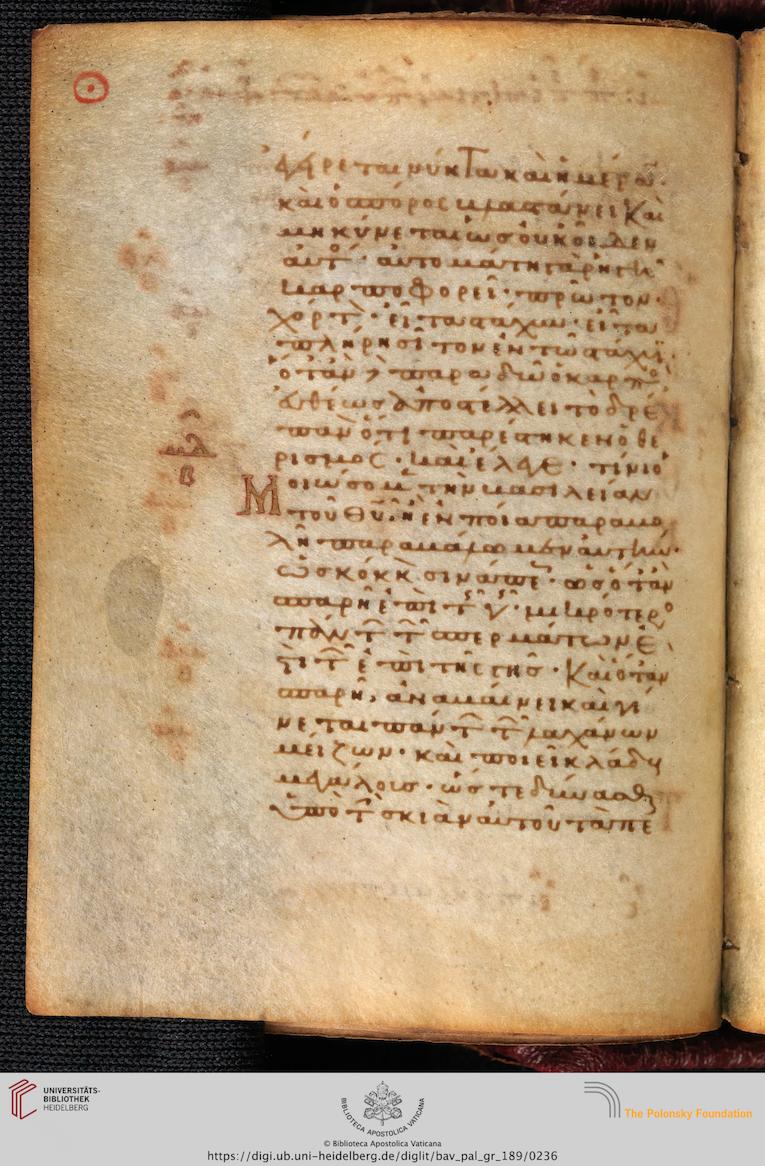 γείρεται νύκτα καὶ ἡμέραν·
καὶ ὁ σπόρος βλαστάνει καὶ
μηκύνεται ὡς οὐκ οἶδεν
αὐτο· αὐτομάτη γὰρ ἡ γῆ
καρποφορεῖ· πρῶτον·
χόρτον· εἶτα στάχυν· εἶτα
πλήρη σῖτον ἐν τῶ στάχυϊ·
ὅταν δὲ παραδῶ ὁ καρπο
εὐθέως ἀποστέλλει τὸ δρέ
πανον ὅτι παρέστηκεν ὁ θε
ρισμός· καὶ ἔλεγε· τίνι ὁ
Μοιώσομεν τὴν βασιλείαν
τοῦ θυ· ἢ ἐν ποία παραβο
λῆ παραβάλωμεν αὐτήν·
ὡς κόκκον σινάπεως· ὃς ὅταν
σπαρῆ ἐπὶ τῆς γῆς· μικρότερο
πάντων τῶν σπερμάτων ἐ
στὶ τῶν ἐπὶ τῆς γῆς· καὶ ὅταν
σπαρῆ, ἀναβαίνει καὶ γί
νεται πάντων τῶν λαχάνων
μείζων· καὶ ποιεῖ κλάδους
μεγάλους· ὥστε δύνασθαι
ὑπὸ τὴν σκιὰν αὐτοῦ τὰ πε
UNIVERSITÄTS-
BIBLIOTHEK
HEIDELBERG
BIBLIOTECA APOSTOLICA VATICANA
The Polonsky Foundation
© Biblioteca Apostolica Vaticana
https://digi.ub.uni-heidelberg.de/diglit/bav_pal_gr_189/0236